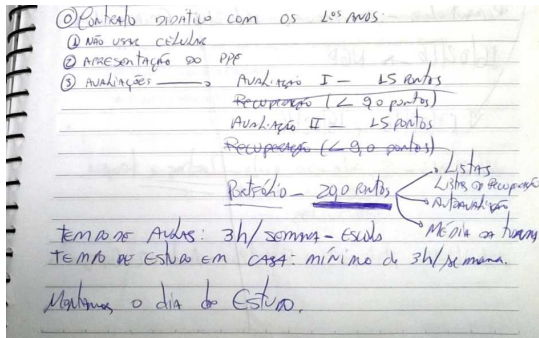 ⓪ Contrato didático com os 1ºs anos.
① Não usar celular
② Apresentação do PPE
③ Avaliações → Avaliação I – 15 pontos
Recuperação (< 9,0 pontos)
Avaliação II – 15 pontos
Recuperação (< 9,0 pontos)
Portfólio – 20,0 pontos
Listas
Listas de Recuperação
Autoavaliação
Média da turma
Tempo de Aulas: 3h/semana – Escola
Tempo de Estudo em casa: mínimo de 3h/semana.
o dia de Estudo.